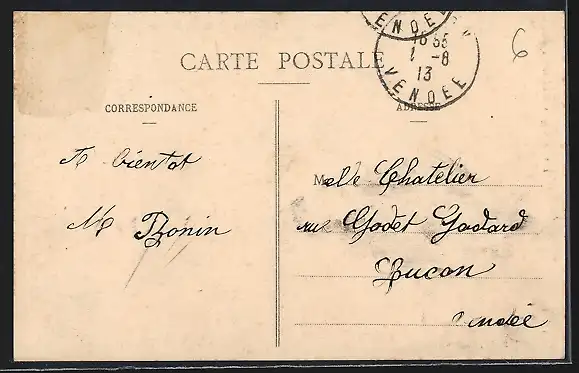 VENDEE
CARTE POSTALE
16 55
1 -8
13
VENDEE
6
CORRESPONDANCE
ADRESSE
A bientot
M Bonin
Melle Chatelier
rue Godet Godard
Lucon
Vendée